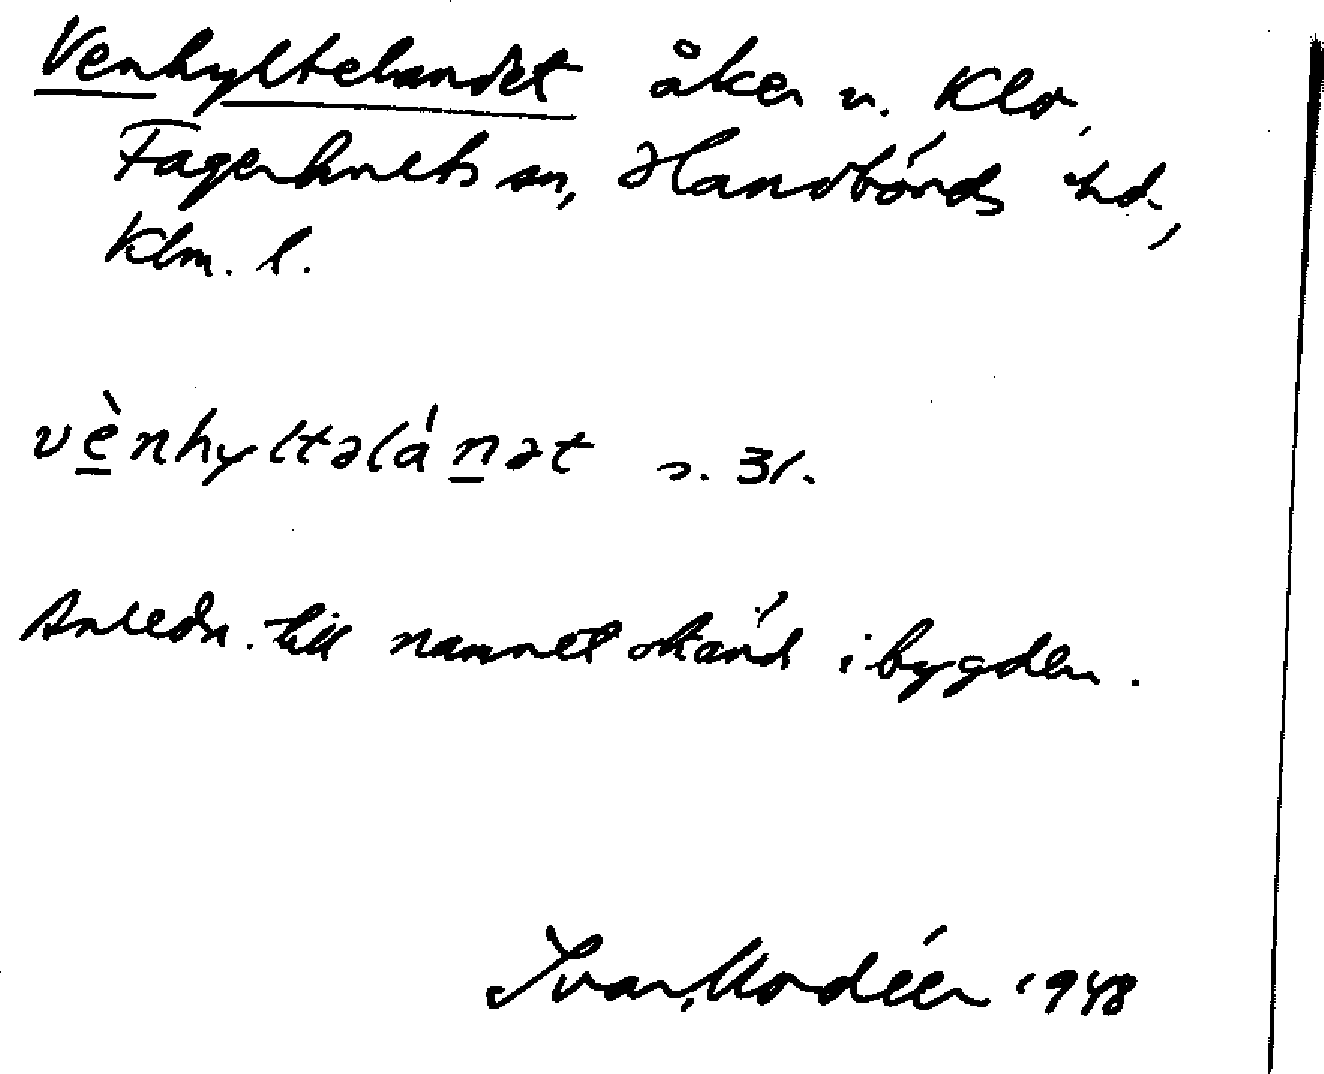 Venhyltelandet åker u. Klo,
Fagerhults sn, Handbörds hd,
Klm. l.
vènhyltəlánət s. 31.
Anledn. till namnet okänd i bygden.
Ivar Modéer 1948